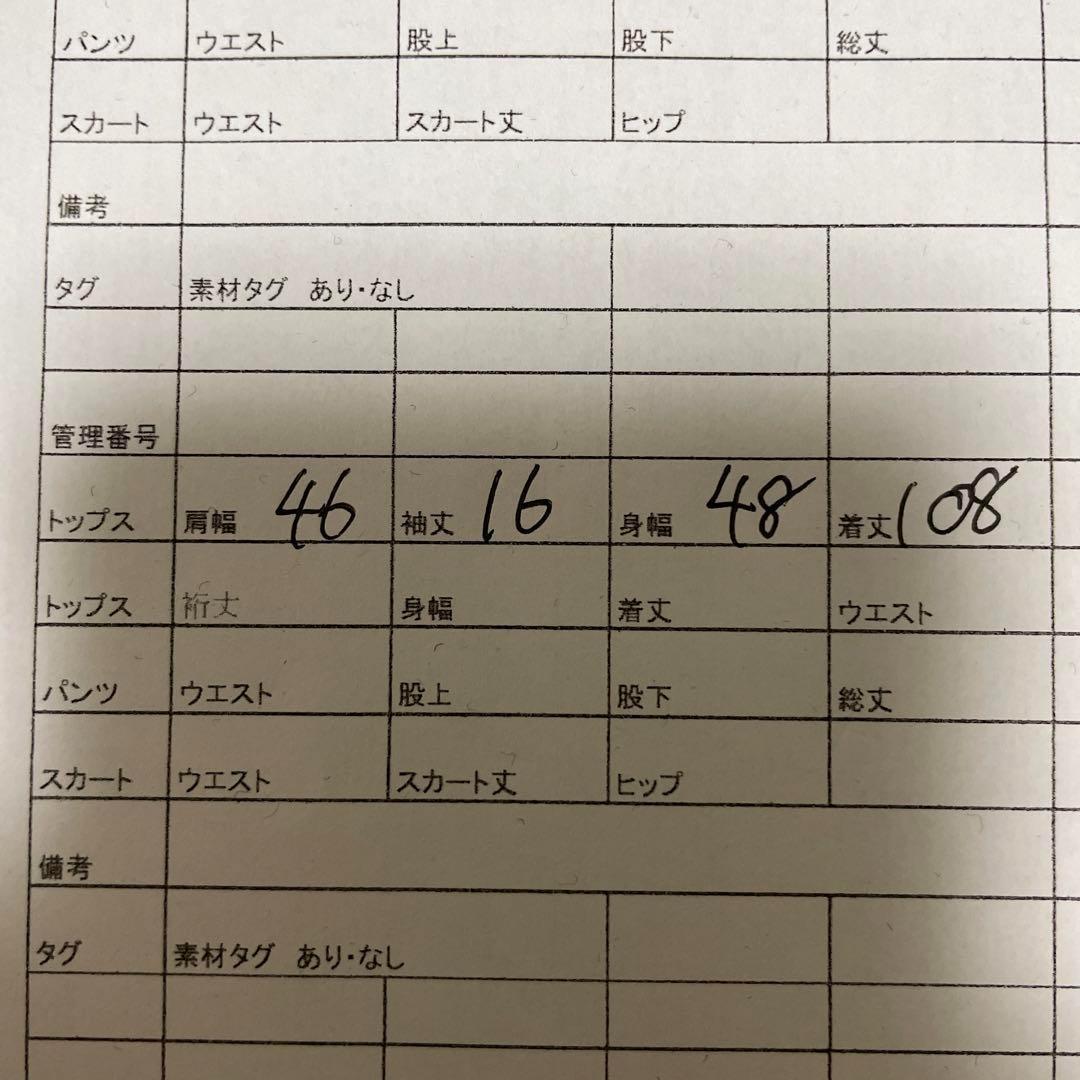 パンツ ウエスト 股上 股下 総丈
スカート ウエスト スカート丈 ヒップ
備考
タグ 素材タグ あり・なし
管理番号
トップス 肩幅 46 袖丈 16 身幅 48 着丈 108
トップス 裄丈 身幅 着丈 ウエスト
パンツ ウエスト 股上 股下 総丈
スカート ウエスト スカート丈 ヒップ
備考
タグ 素材タグ あり・なし